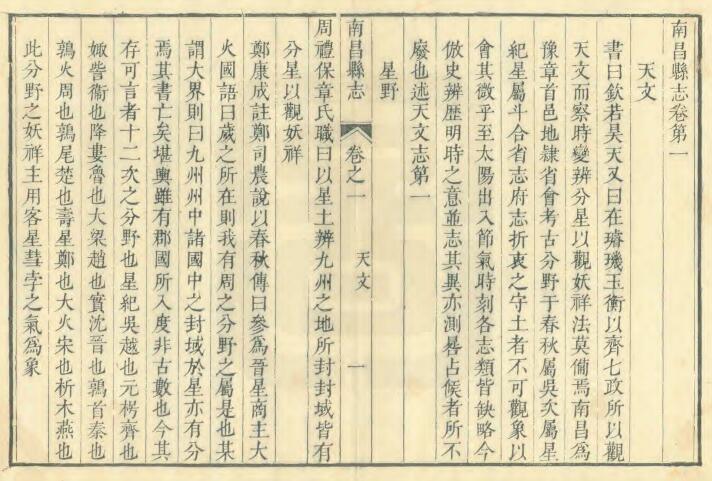 南昌縣志卷第一
天文
書曰欽若昊天又曰在璿璣玉衡以齊七政所以觀
天文而察時變辨分星以觀妖祥法莫備焉南昌為
豫章首邑地隸省會考古分野于春秋屬吳次屬星
紀星屬斗合省志府志折衷之守土者不可觀象以
會其微乎至太陽出入節氣時刻各志類皆缺略今
倣史辨歷明時之意並志其異亦測晷占候者所不
廢也述天文志第一
星野
南昌縣志 卷之一 天文 一
周禮保章氏職曰以星土辨九州之地所封封域皆有
分星以觀妖祥
鄭康成註鄭司農說以春秋傳曰參為晉星商主大
火國語曰歲之所在則我有周之分野之屬是也某
謂大界則曰九州州中諸國中之封域於星亦有分
焉其書亡矣堪輿雖有郡國所入度非古數也今其
存可言者十二次之分野也星紀吳越也元枵齊也
娵訾衞也降婁魯也大梁趙也實沈晉也鶉首秦也
鶉火周也鶉尾楚也壽星鄭也大火宋也析木燕也
此分野之妖祥主用客星彗孛之氣為象